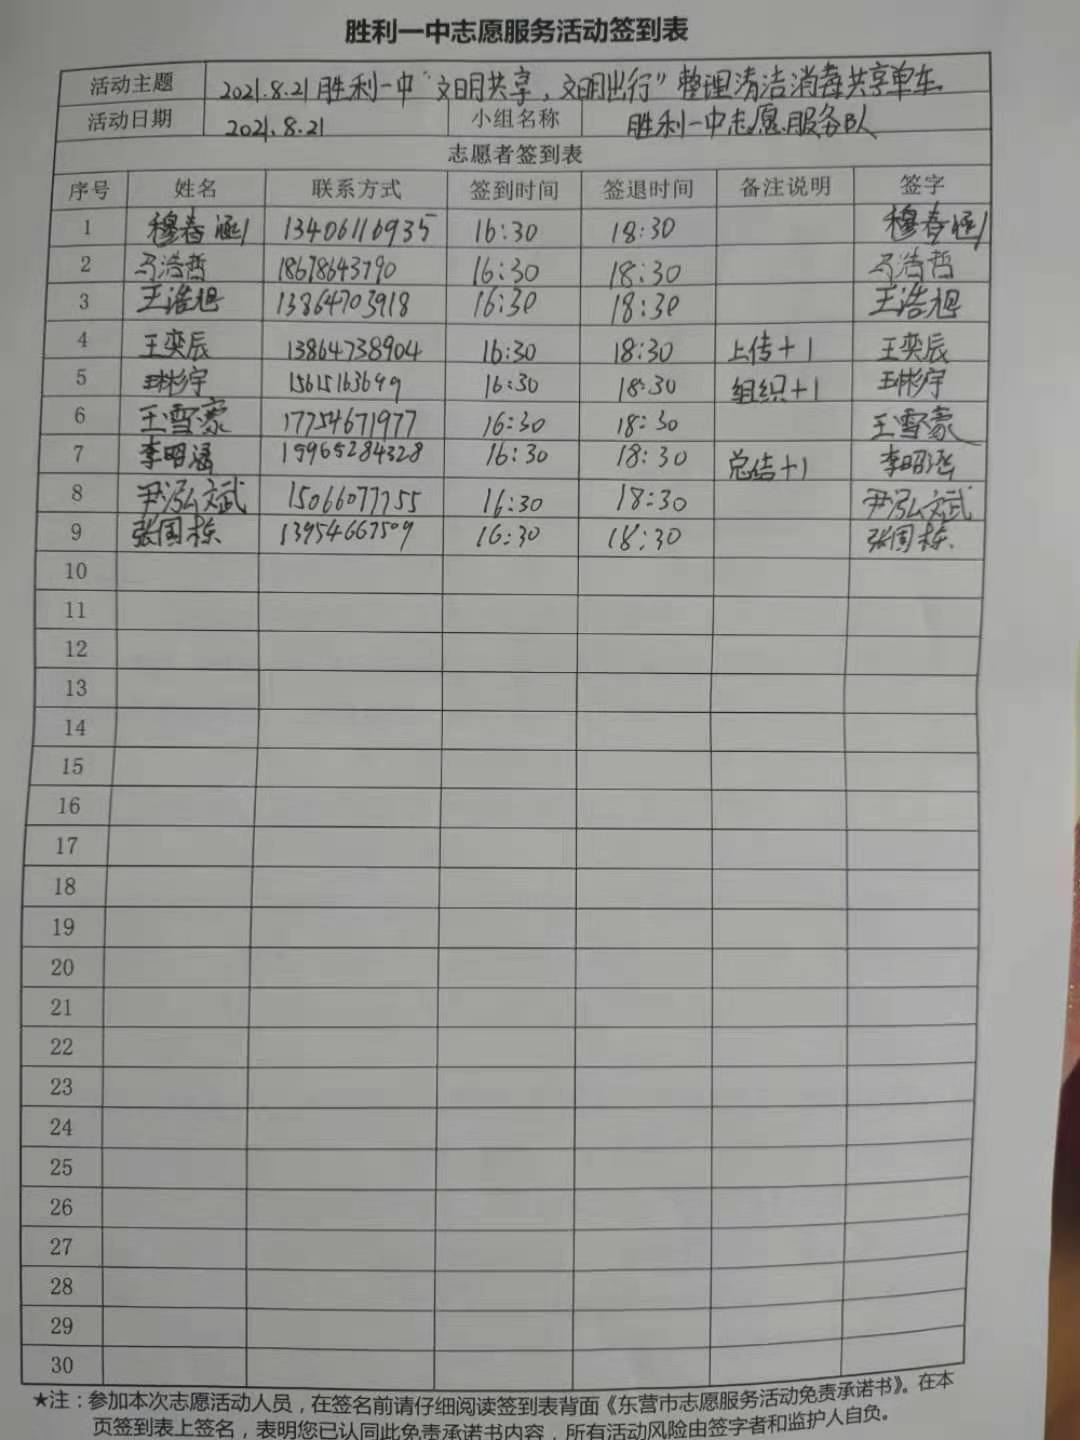 胜利一中志愿服务活动签到表
活动主题 2021.8.21胜利一中“文明共享，文明出行”整理清洁消毒共享单车
活动日期 2021.8.21 小组名称 胜利一中志愿服务队
志愿者签到表
序号 姓名 联系方式 签到时间 签退时间 备注说明 签字
1 穆春涵 13406116935 16:30 18:30 穆春涵
2 马浩哲 18678643790 16:30 18:30 马浩哲
3 王浩旭 13864703918 16:30 18:30 王浩旭
4 王奕辰 13864738904 16:30 18:30 上传+1 王奕辰
5 王彬宇 15615163699 16:30 18:30 组织+1 王彬宇
6 王雪蒙 17754671977 16:30 18:30 王雪蒙
7 李昭涵 15965284328 16:30 18:30 总结+1 李昭涵
8 尹泓斌 15066077755 16:30 18:30 尹泓斌
9 张国栋 13954667509 16:30 18:30 张国栋
10
11
12
13
14
15
16
17
18
19
20
21
22
23
24
25
26
27
28
29
30
★注：参加本次志愿活动人员，在签名前请仔细阅读签到表背面《东营市志愿服务活动免责承诺书》。在本
页签到表上签名，表明您已认同此免责承诺书内容，所有活动风险由签字者和监护人自负。